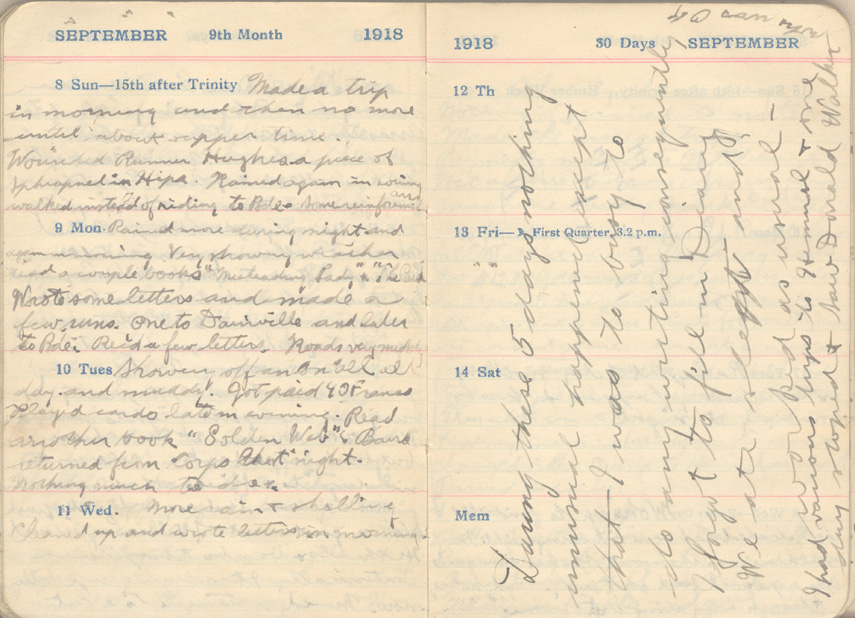 SEPTEMBER 9th Month 1918
8 Sun—15th after Trinity Made a trip
in morning and then no more
until about supper time.
Wounded Runner Hughes a piece of
Sphrapnel in Hips. Rained again in evening
walked instead of riding to Bde. Some reinforcmts
9 Mon. Rained more during night and
again morning Very showery weather
Read a couple books "Misleading Lady" & "The
Wrote some letters and made a
few runs. one to Dainville and later
to Bde. Recd a few letters. Roads very muddy
10 Tues Showery off an on all
day and muddy. Got paid 40 Francs
Play'd cards late in evening. Read
another book "Golden Web".
returned from Corps that night.
Nothing much to do.
11 Wed. More rain & shelling
Cleaned up and wrote letters in morning.
1918 30 Days SEPTEMBER
12 Th
13 Fri— First Quarter, 3.2 p.m.
" "
14 Sat
Mem
During these 5 days nothing
unusual happened except
that I was to busy to
do any writing consequently
forgot to fill in Diary
We ate slept and
worked as usual -
I had various trips to Hummel & one
day stoped & saw Donald Walker